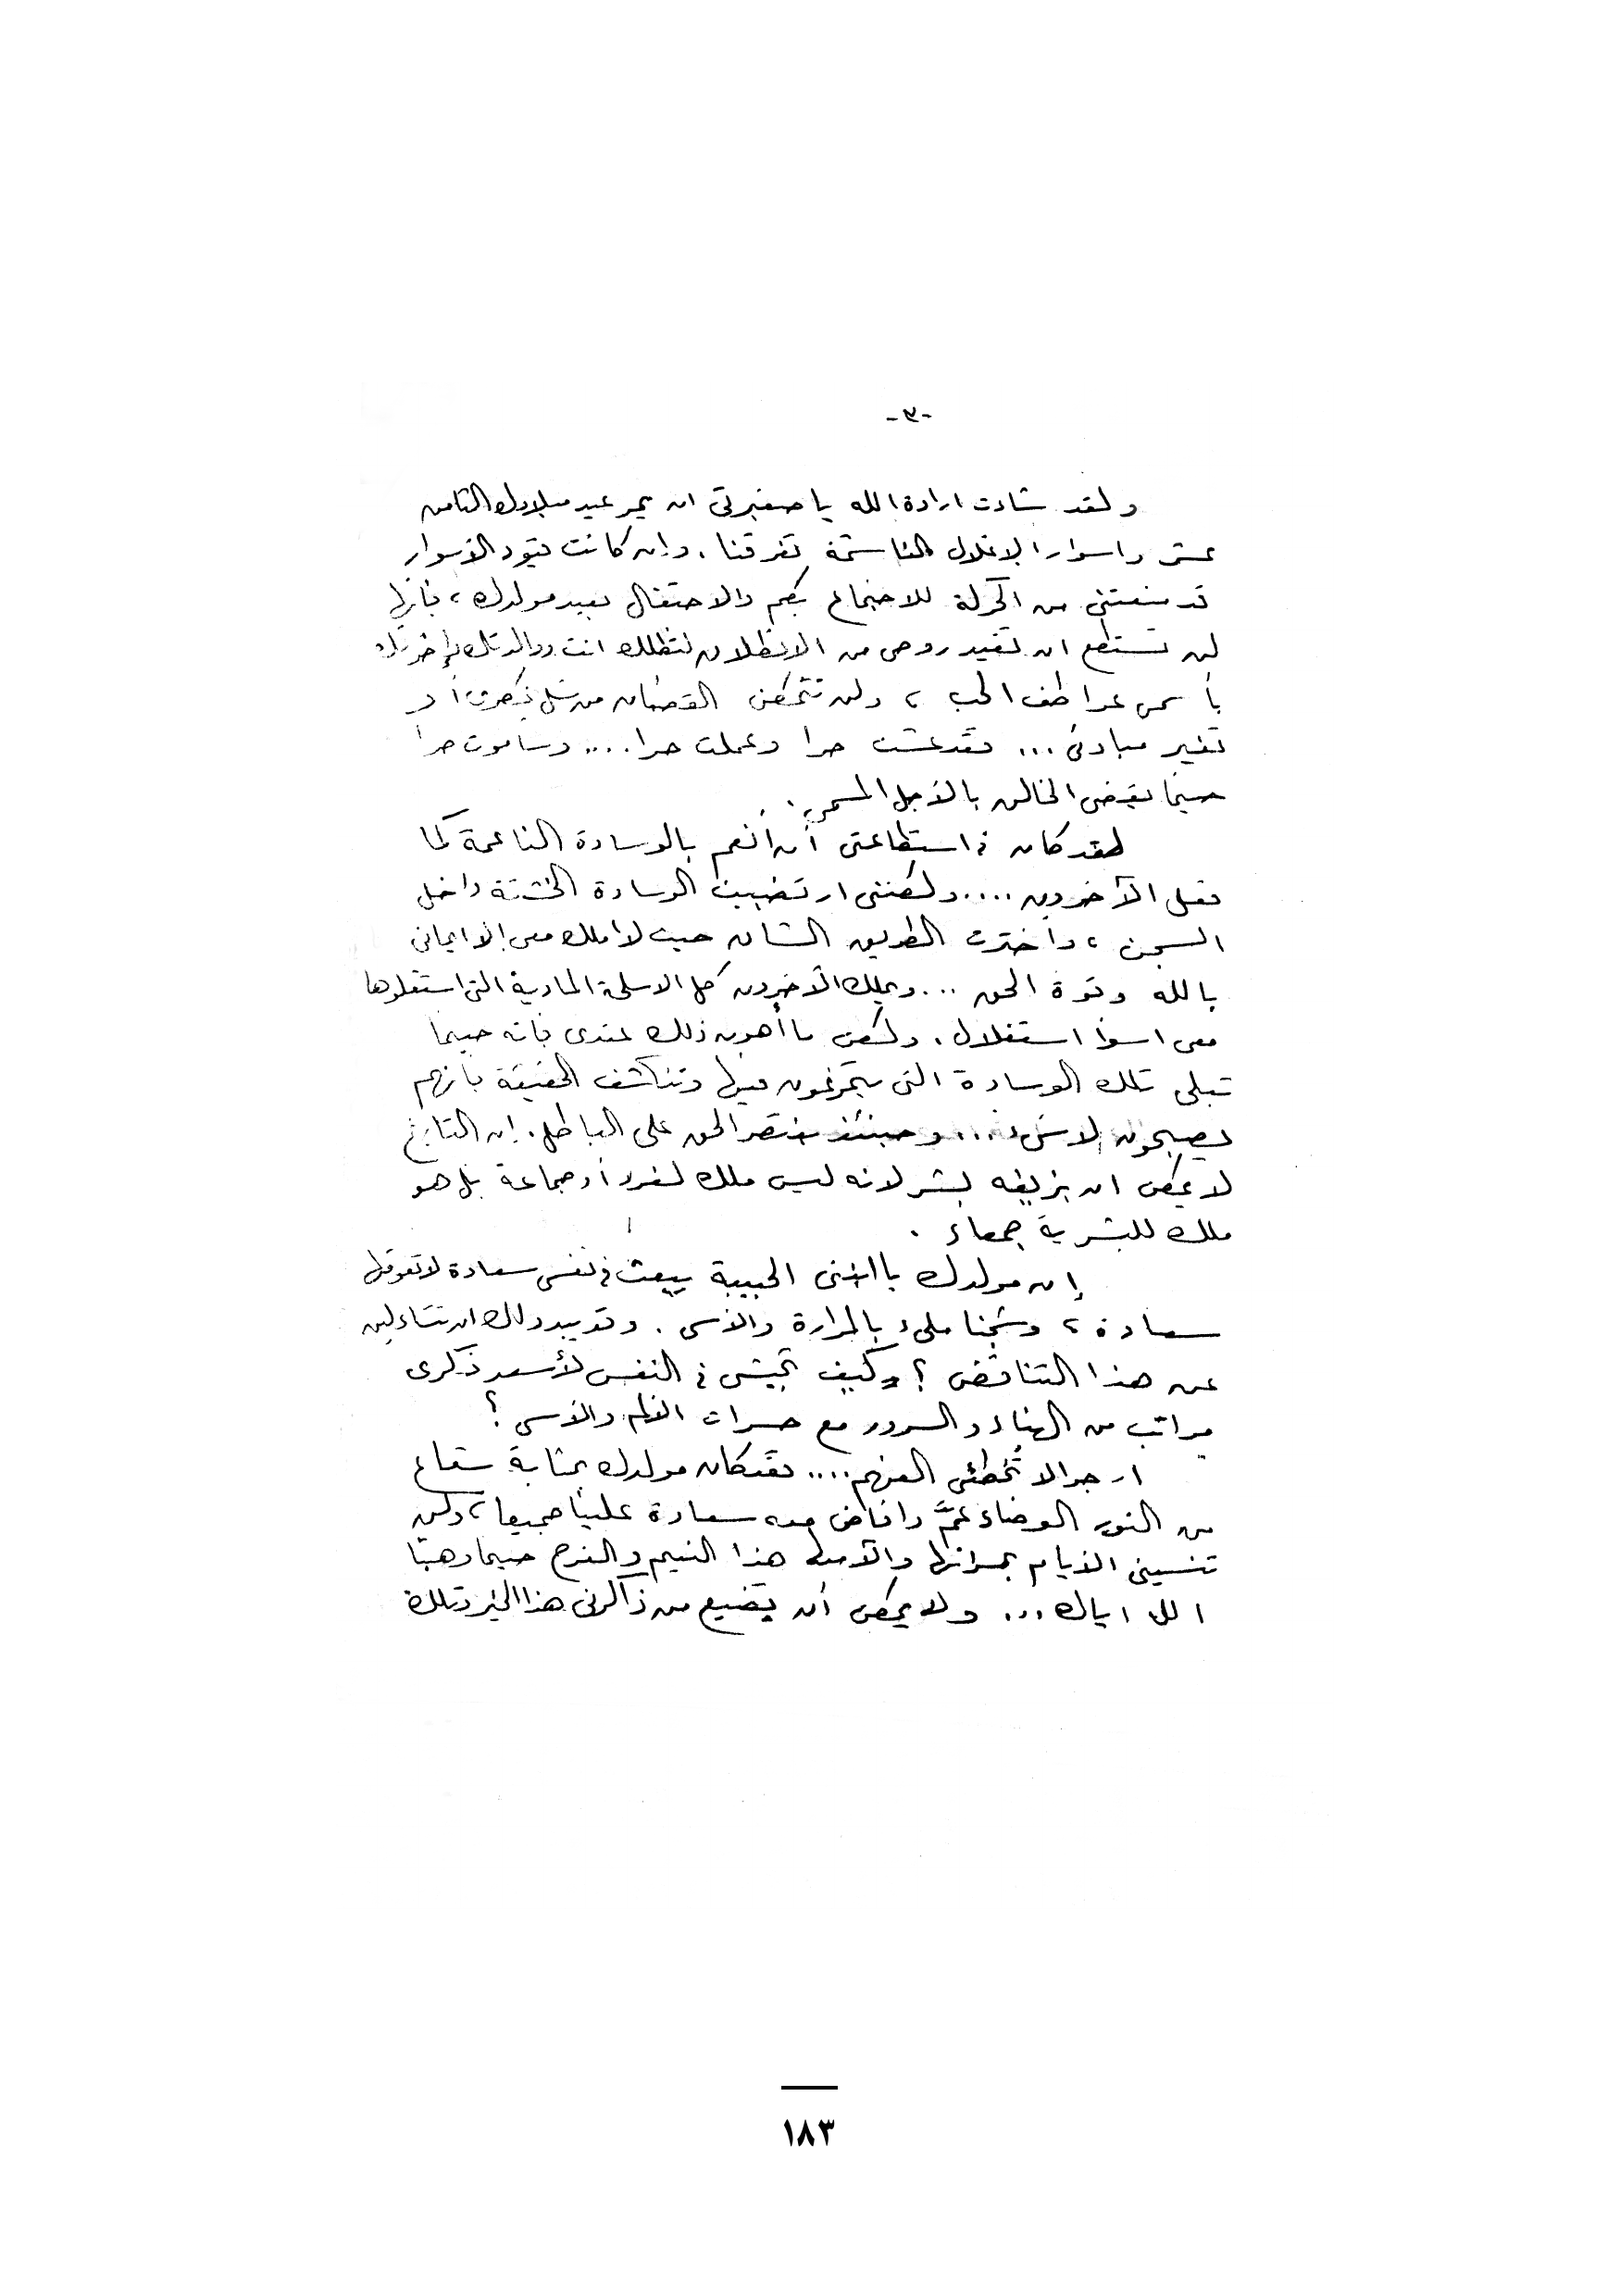 -٣-
ولقد شاءت ارادة الله يا صغيرتى ان يمر عيد ميلادك الثامن
عشر واسوار الاغلال الغاشمة تفرقنا. وإن كانت قيود الأسوار
قد منعتنى من الحركة للاجتماع بكم والاحتفال بعيد مولدك، فانها
لن تستطع ان تقيد روحى من الانطلاق لتظلك انت ووالدتك وإخوتك
بأسمى عواطف الحب، ولن تتمكن القضبان من شل فكرى أو
تغير مبادئى ... فقد عشت حرا وعملت حرا .... وساموت حرا
حينما يقضى الخالق بالأجل المسمى.
لقد كان فى استطاعتى أن أنعم بالوسادة الناعمة كما
فعل الآخرون .... ولكننى ارتضيت الوسادة الخشنة داخل
السجن، وأخترت الطريق الشاق حيث لا املك معى إلا ايمانى
بالله وقوة الحق ... ويملك الآخرون كل الاسلحة المادية التى استغلوها
معى اسوأ استغلال. ولكن ما أهون ذلك عندى فانه حينما
تبلى تلك الوسادة التى يتمرغون فيها وتنكشف الحقيقة بانهم
يصبحون لا شىء ... وحينئذ ينتصر الحق على الباطل. إن التاريخ
لا يمكن ان يزيفه بشر لانه ليس ملك لفرد أو جماعة بل هو
ملك للبشرية جمعاء.
إن مولدك يا ابنتى الحبيبة يبعث فى نفسى سعادة لا تفوقها
سعادة، وشجنا ملىء بالمرارة والأسى. وقد يبدو لك ان تتساءلين
عن هذا التناقض؟ وكيف تجيش فى النفس لأسعد ذكرى
مراتب من الهناء والسرور مع حسرات الظلم والأسى؟
ارجو الا تخطئى الفهم .... فقد كان مولدك بمثابة شعاع
من النور الوضاء عمَّ وافاض منه سعادة علينا جميعا، ولن
تنسينى الأيام بمراتها وآلامها هذا النعيم والفرح حينما وهبنا
الله اياك ... ولا يمكن أن يضيع من ذاكرتى هذا الخير وتلك
١٨٣